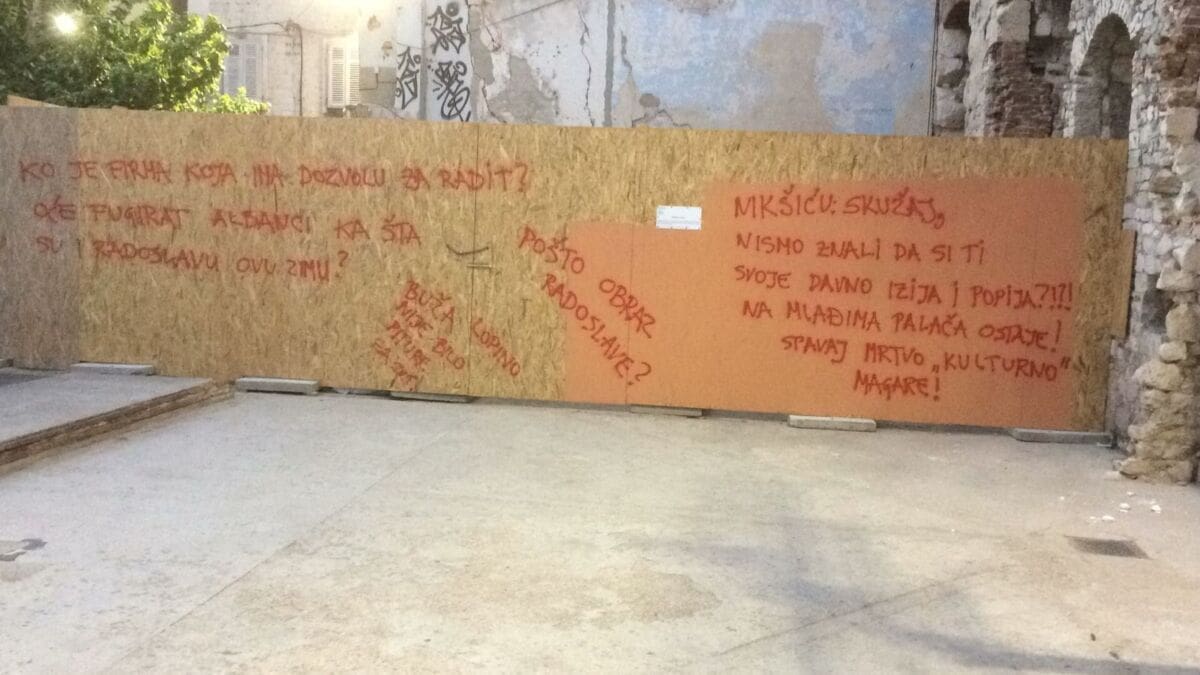 KO JE FIRMA KOJA IMA DOZVOLU ZA RADIT?
OĆE FUGIRAT ALBANCI KA ŠTA
SU I RADOSLAVU OVU ZIMU?
BUŽA LOPINO
NIJE BILO
PITURE
ZA
POŠTO OBRAZ
RADOSLAVE?
MKŠIĆU: SKUŽAJ,
NISMO ZNALI DA SI TI
SVOJE DAVNO IZIJA I POPIJA?!?!
NA MLAĐIMA PALAČA OSTAJE!
SPAVAJ MRTVO „KULTURNO"
MAGARE!